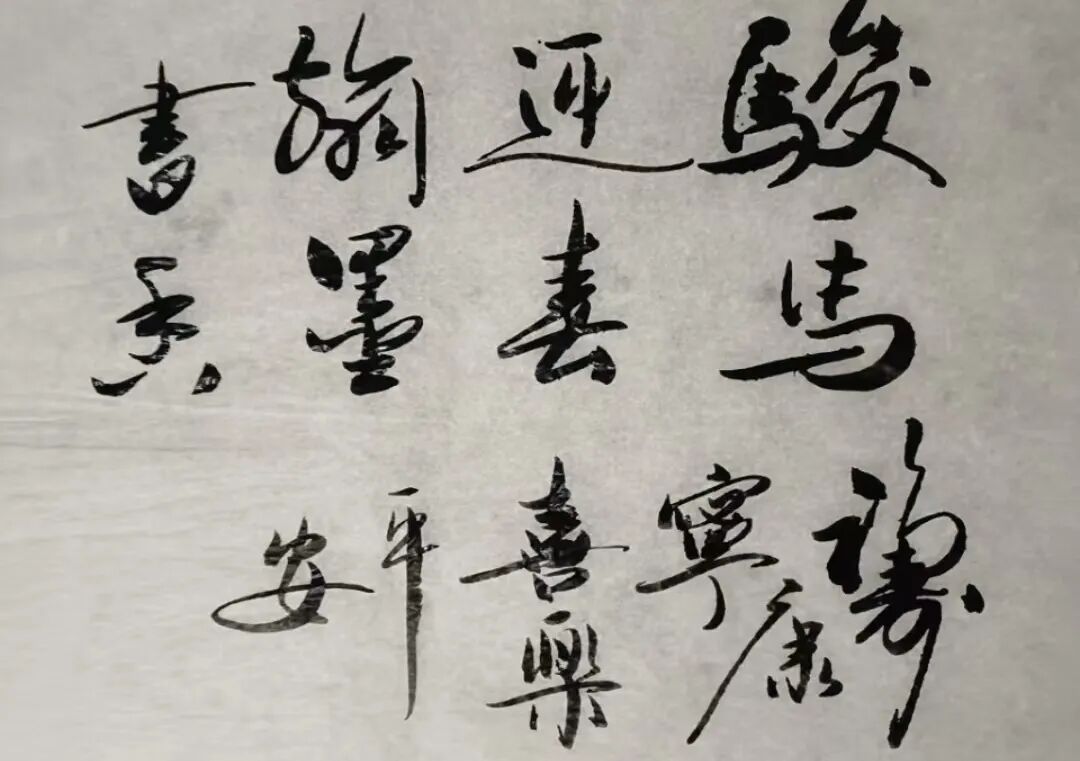 駿馬
迎春
翰墨
書香
福
寧康
喜樂
平
安